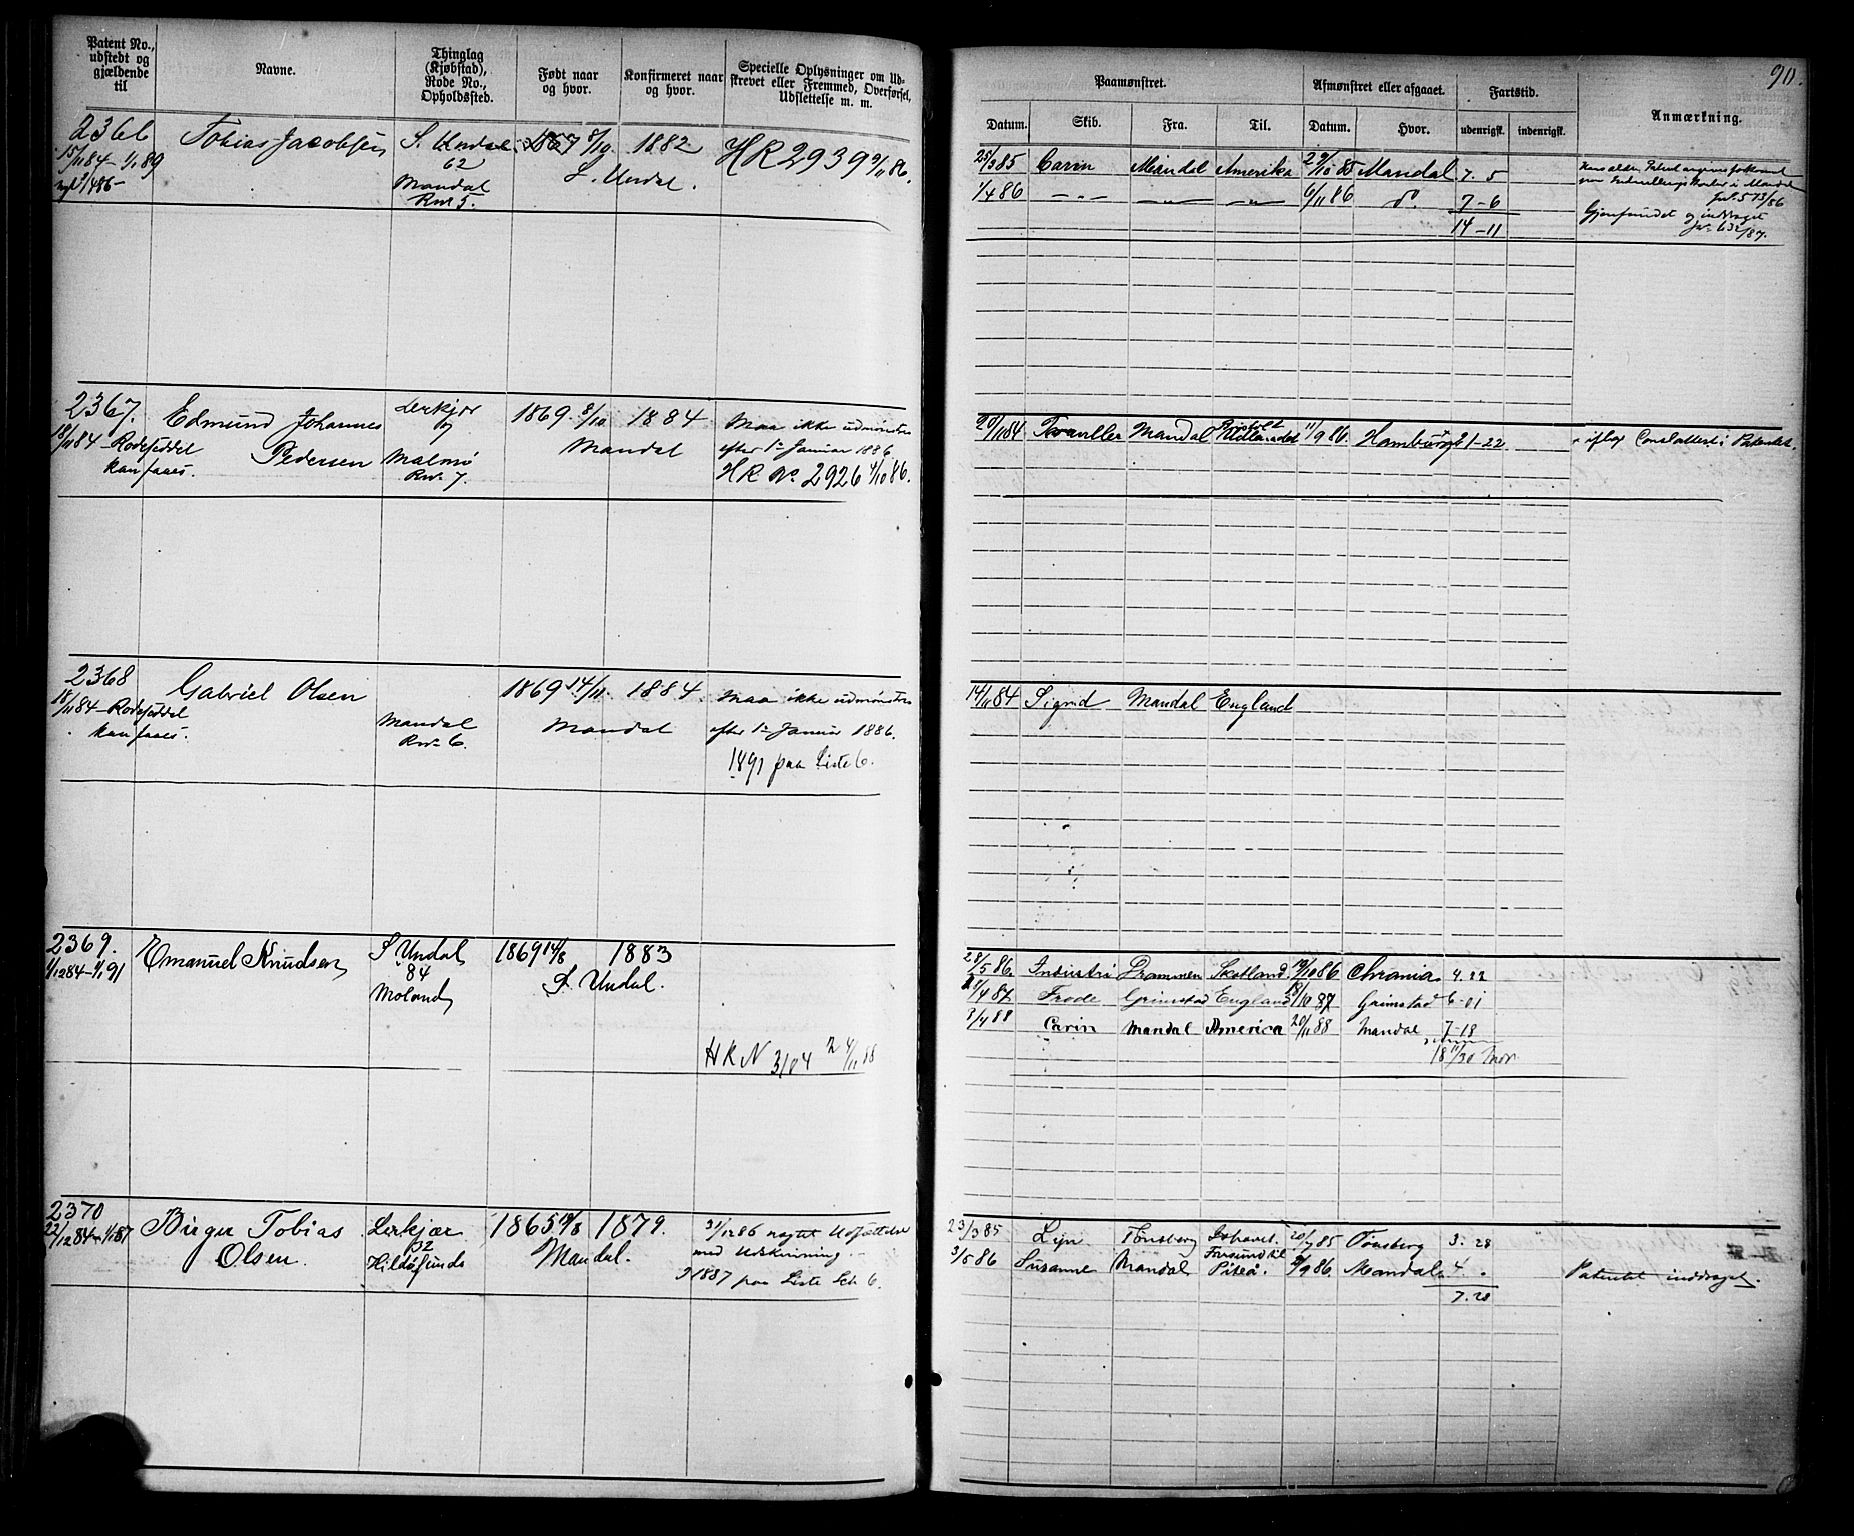 Patent No.,
udstedt og
gjældende
til
Navne.
Thinglag
(Kjøbstad),
Rode No.,
Opholdssted.
Født naar
og hvor.
Konfirmeret naar
og hvor.
Specielle Oplysninger om Ud-
skrevet eller Fremmed, Overførsel,
Udslettelse m. m.
2366
15/11 84 - 1/1 89
Tobias Jacobsen
S. Undal
62
Mandal
Rno 5.
1867 8/10
1882
S. Undal.
HR 2939 9/11 86.
2367.
18/11 84 - Rodeseddel
kan faaes.
Edmund Johannes
Pedersen
Lerkjær
17
Malmø
Rno 7.
1869. 8/10
1884
Mandal
Maa ikke udmønstres
efter 1ste Januar 1886.
HR No 2926 4/10 86.
2368
18/11 84 - Rodeseddel
kan faaes.
Gabriel Olsen
Mandal
Rno 6.
1869 14/11
1884.
Mandal
Maa ikke udmønstres
efter 1ste Januar 1886.
1891 paa Liste 6.
2369.
1/12 84 - 1/1 91
Emanuel Knudsen
S. Undal
84
Moland
1869 14/8
1883
S. Undal.
HRN 3104 24/11 88
2370
22/12 84 - 1/1 87
Birger Tobias
Olsen.
Lerkjær
32
Hildøsunds
1865 19/8
1879.
Mandal.
31/12 86 nægtet Udsættelse
med Udskrivning.
1887 paa Liste Sch 6.
90.
Paamønstret.
Afmønstret eller afgaaet.
Fartstid.
Anmærkning.
Datum.
Skib.
Fra.
Til.
Datum.
Hvor.
udenrigsk.
indenrigsk.
25/3 85 Carin Mandal Amerika 29/10 85 Mandal 7. 5
1/4 86 — „ — — „ — — „ — 6/11 86 do. 7-6
14-11
Gjenfundet og inddraget
Jno. 632/87.
20/11 84 Traveller Mandal Bristol Udlandet 11/9 86. Hamburg 21-22
14/11 84 Sigrid Mandal England
28/5 86. Industri Drammen Skotland. 19/10 86 Chrania 4. 22
21/4 87 Frode Grimstad England 18/10 87 Grimstad 6-01
3/4 88 Carin Mandal America 20/11 88 Mandal 7-18
18 11/30 Mdr
23/3 85 Lyn Tønsberg Ishavet. 20/7 85 Tønsberg 3. 28
3/5 86 Susanne Mandal Farsund til Piteå. 9/9 86. Mandal 4 .
7. 28
Patentet inddraget.